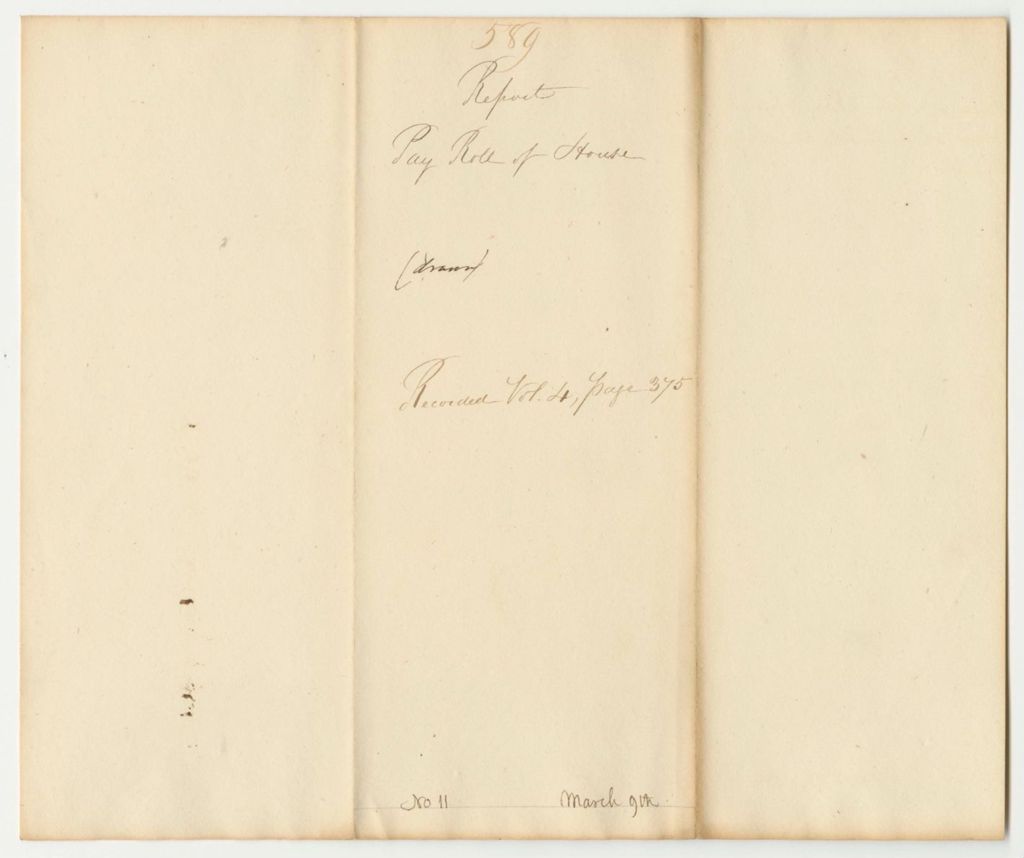 589
Report
Pay Roll of House
(drawn)
Recorded Vol. 4, page 375
No 11 March 9th